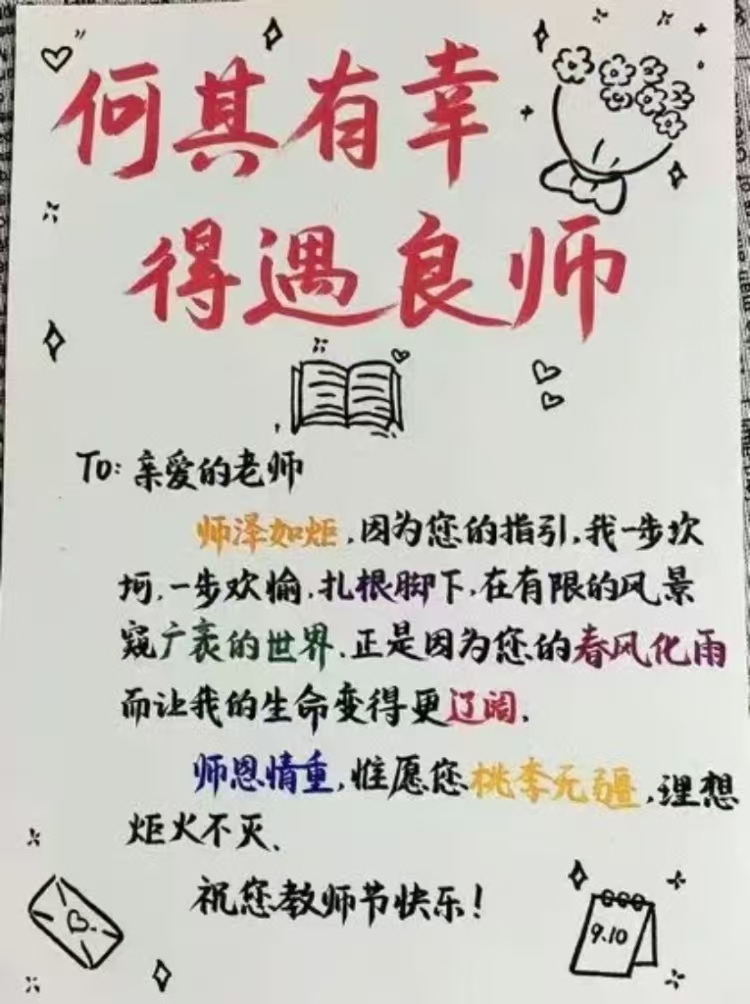 何其有幸
得遇良师
To: 亲爱的老师
师泽如炬,因为您的指引,我一步坎
坷,一步欢愉,扎根脚下,在有限的风景
窥广袤的世界、正是因为您的春风化雨
而让我的生命变得更辽阔、
师恩情重,惟愿您桃李无疆,理想
炬火不灭、
祝您教师节快乐!
9.10